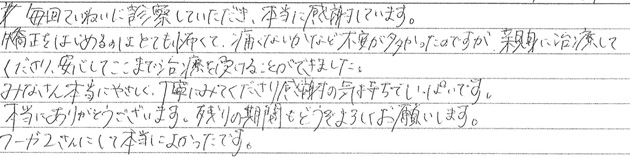 毎回ていねいに診察していただき、本当に感謝しています。
矯正をはじめるのはとても怖くて、痛くないかなど不安が多かったのですが、親身に治療して
くださり、安心してここまで治療を受けることができました。
みなさん本当にやさしく、丁寧にみてくださり感謝の気持ちでいっぱいです。
本当にありがとうございます。残りの期間もどうぞよろしくお願いします。
さんにして本当によかったです。